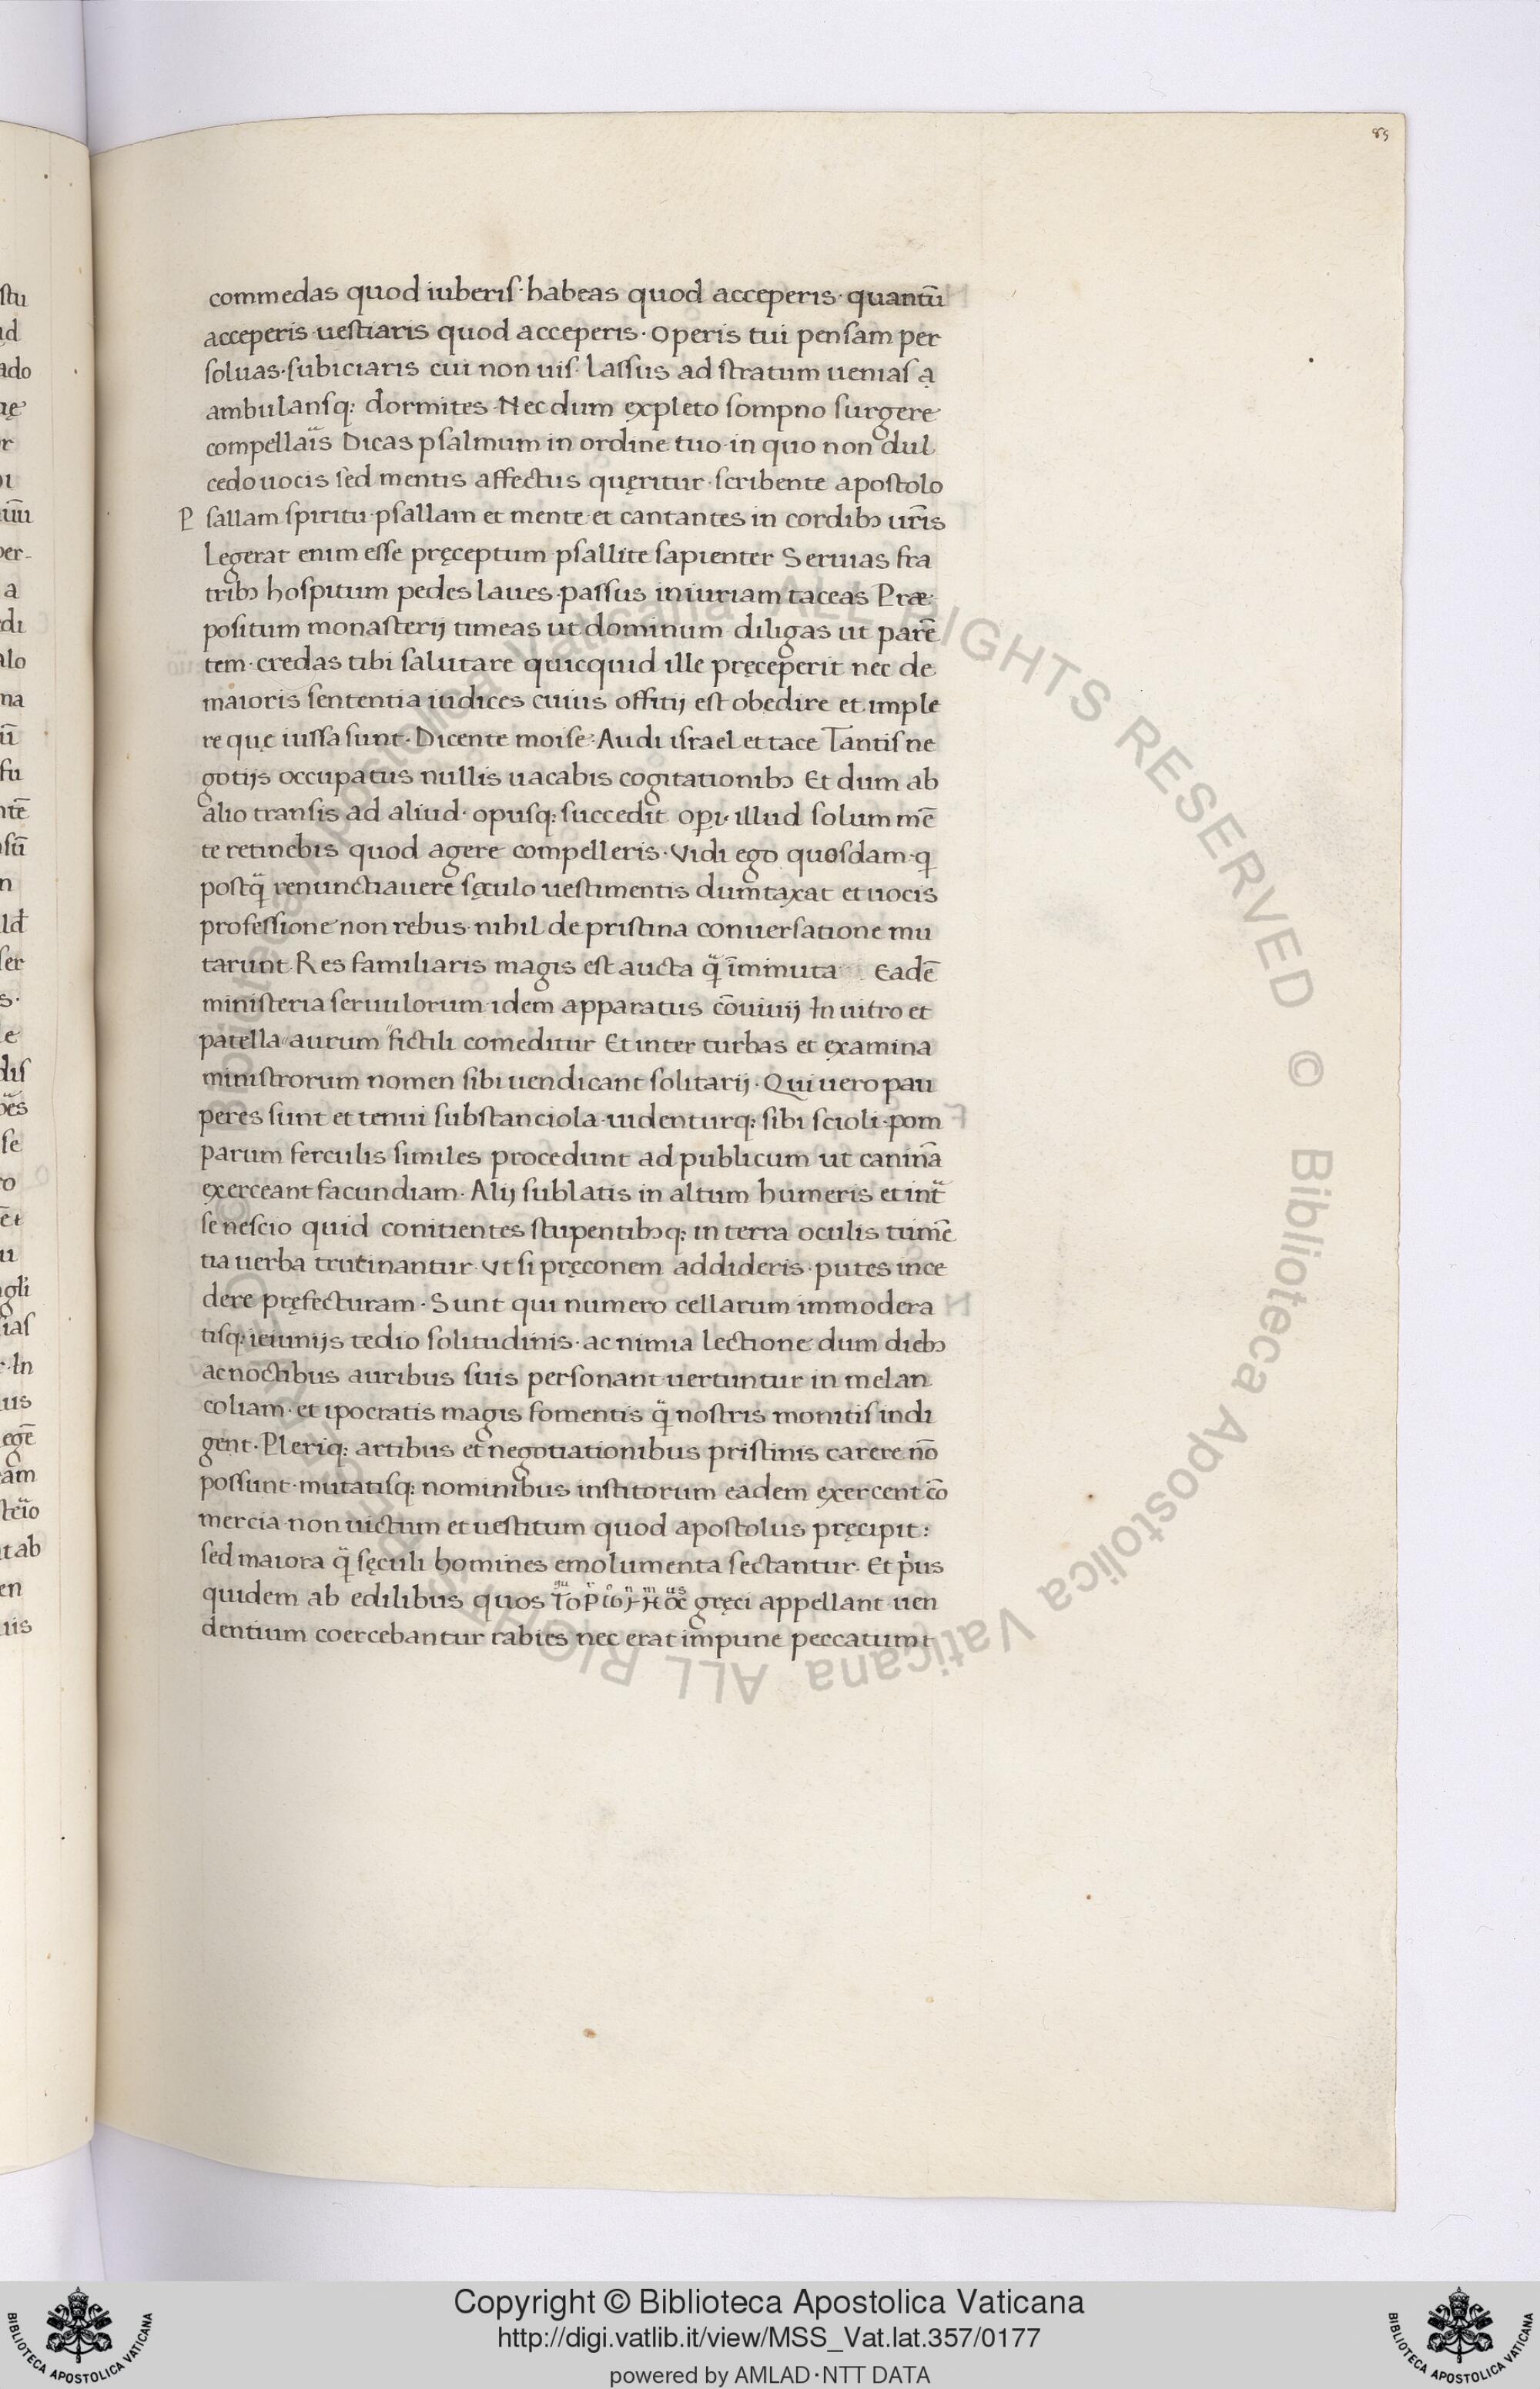 85
commedas quod iuberis· habeas quod acceperis· quantū
acceperis uestiaris quod acceperis· Operis tui pensam per
soluas· subiciaris cui non uis· Lassus ad stratum uenias ą
ambulansq; dormites· Nec dum expleto sompno surgere
compellaris Dicas psalmum in ordine tuo· in quo non dul
cedo uocis sed mentis affectus quęritur· scribente apostolo
Psallam spiritu· psallam et mente· et cantantes in cordibꝰ ur̄is
Legerat enim esse pręceptum· psallite sapienter Seruias fra
tribꝰ hospitum pedes laues· passus iniuriam taceas Præ
positum monasterij timeas ut dominum· diligas ut parē
tem· credas tibi salutare quicquid ille pręceperit nec de
maioris sententia iudices cuius offitij est obedire et imple
re quę iussa sunt· Dicente moise: Audi israel et tace Tantis ne
gotijs occupatus nullis uacabis cogitationibꝰ Et dum ab
alio transis ad aliud· opusq; succedit op̱i· illud solum mē
te retinebis quod agere compelleris· Vidi ego quosdam· q
postq̄ renunctiauere sęculo uestimentis dumtaxat et uocis
professione non rebus· nihil de pristina conuersatione mu
tarunt· Res familiaris magis est aucta q̄ īminuta Eadē
ministeria seruulorum· idem apparatus cōuiuij In uitro et
patella aurum fictili comeditur Et inter turbas et examina
ministrorum nomen sibi uendicant solitarij· Qui uero pau
peres sunt et tenui substanciola· uidenturq; sibi scioli· pom
parum ferculis similes procedunt ad publicum ut caninā
exerceant facundiam· Alij sublatis in altum humeris et int̄
se nescio quid conitientes stupentibꝰq; in terra oculis tumē
tia uerba trutinantur· Vt si pręconem addideris· putes ince
dere pręfecturam· Sunt qui numero cellarum immodera
tisq; ieiunijs tedio solitudinis· ac nimia lectione· dum diebꝰ
ac noctibus auribus suis personant uertuntur in melan
coliam· et ipocratis magis fomentis q̄ nostris monitis indi
gent· Pleriq; artibus et negotiationibus pristinis carere nō
possunt· mutatisq; nominibus institorum eadem exercent cō
mercia· non uictum et uestitum quod apostolus pręcipit:
sed maiora q̄ sęculi homines emolumenta sectantur· Et pius
quidem ab edilibus quos gręci appellant uen
dentium coercebantur rabies nec erat impune peccatum t
Copyright © Biblioteca Apostolica Vaticana
http://digi.vatlib.it/view/MSS_Vat.lat.357/0177
powered by AMLAD·NTT DATA
BIBLIOTECA APOSTOLICA VATICANA
BIBLIOTECA APOSTOLICA VATICANA
© Biblioteca Apostolica Vaticana ALL RIGHTS RESERVED © Biblioteca Apostolica Vaticana ALL RIGHTS RESERVED